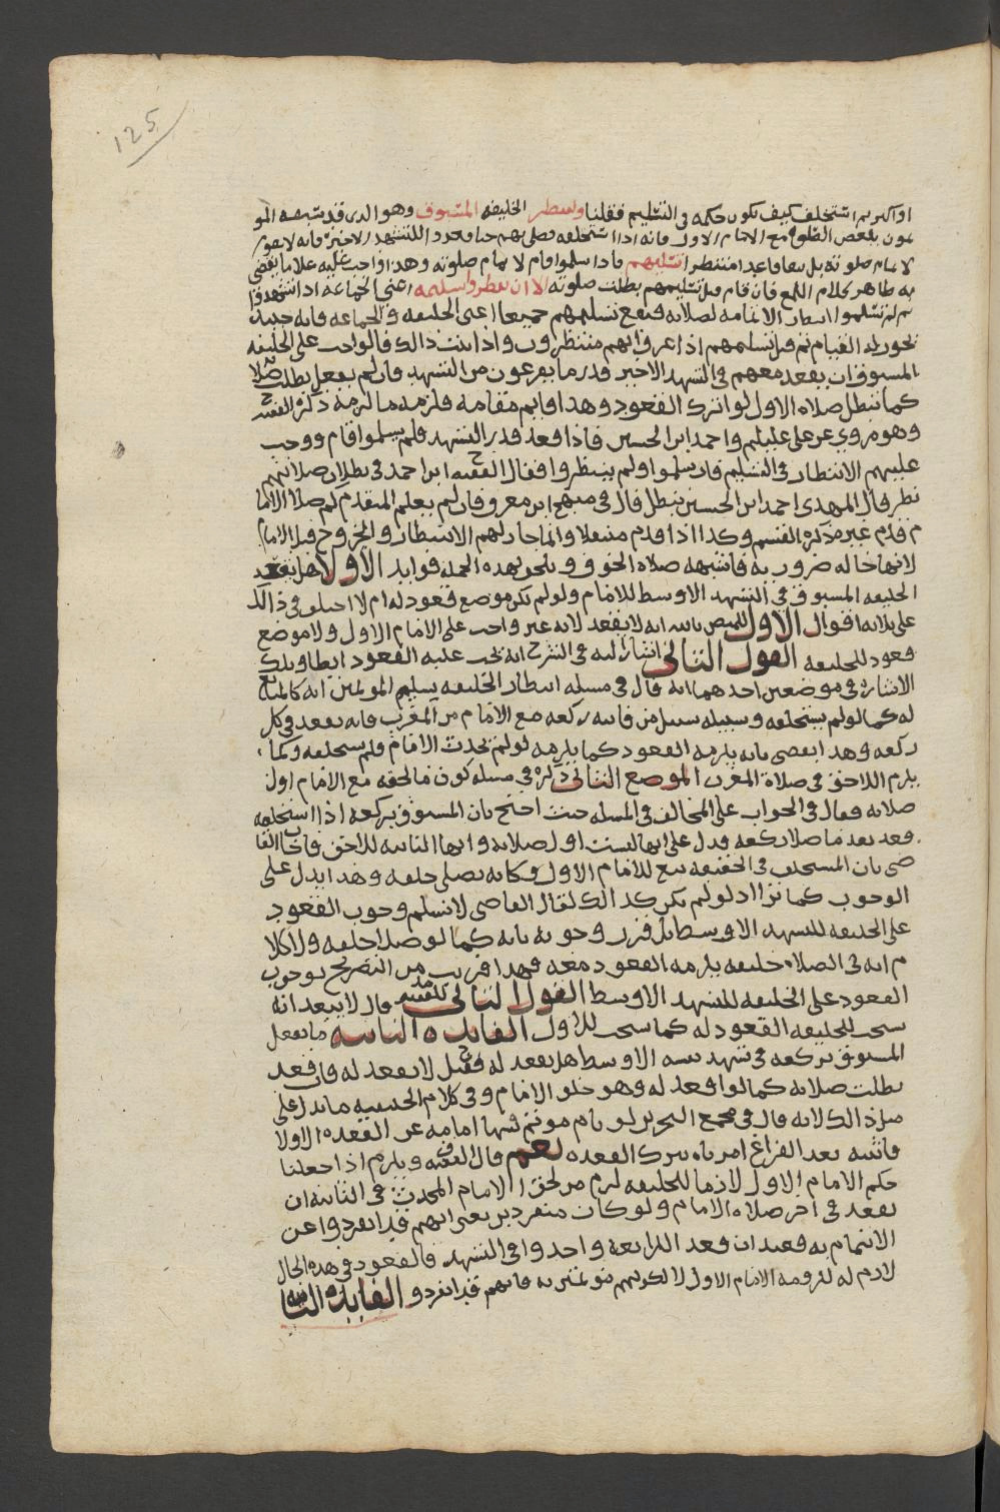 125
او اكثر ثم استخلف كيف تكون حكمه في التسليم فقلنا ولينتظر الخليفه المسبوق وهو الذي قد سبقه المو
تمون ببعض الصلوه مع الامام الاول فانه اذا استخلفه فصلى بهم حتى قعدوا للتشهد الاخير فانه لا يقوم
لاتمام صلوته بل يبقا قاعدا منتظرا تسليمهم فاذا سلموا قام لاتمام صلوته وهذا واجب عليه على ما يقضي
به ظاهر كلام اللمع فان قام قبل تسليمهم بطلت صلوته الا ان ينتظروا تسليمه اعني الجماعه اذا تشهدوا
ثم لم يسلموا انتظارا لاتمامه لصلاته فيقع تسليمهم جميعا اعني الخليفه والجماعه فانه حينئذ
يجوز له القيام ثم قبل تسليمهم اذا عرف انهم منتظرون واذا ثبت ذالك فالواجب على الخليفه
المسبوق ان يقعد معهم في التشهد الاخير قدر ما يفرغون من التشهد فان لم يفعل بطلت صلا
كما تبطل صلاه الاول لو اترك القعود وهذا قايم مقامه فلزمه ما لزمه ذكره الفقيه ح
وهو مروي عن علي خليل واحمد ابن الحسين فاذا قعد قدر التشهد فلم يسلموا قام ووجب
عليهم الانتظار في التسليم فان سلموا ولم ينتظروا فقال الفقيه ح ابن احمد في بطلان صلاتهم
نظر قال المهدي احمد ابن الحسين تبطل قال في منهج ابن معرف فان لم يعلم المتقدم كم صلا الاما
م قدم غيره ذكره القسم وكذا اذا قدم متنفلا وانما جاز لهم الانتظار والخروج قبل الامام
لانها حاله ضروريه فاشبهه صلاه الخوف ويلحق بهذه الجمله فوايد الاولا هل يقعد
الخليفه المسبوق في التشهد الاوسط للامام ولو لم يكن موضع قعود له ام لا اختلف في ذالك
على ثلاثه اقوال الاول انه لا يقعد لانه غير واجب على الامام الاول ولا موضع
قعود للخليفه القول الثاني اشار اليه في الشرح انه يجب عليه القعود ايضا وتلك
الاشاره في موضعين احدهما انه قال في مسله انتظار الخليفه تسليم المؤتمين انه كالمتابع
له كما لو لم يستخلفه وسبيله سبيل من فاتته ركعه مع الامام من المغرب فانه يقعد في كل
ركعه وهذا يقضي بانه يلزمه القعود كما يلزمه لو لم يحدث الامام ولم يستخلفه وكما
يلزم اللاحق في صلاة المغرب الموضع الثاني ذكره في مسله كون ما لحقه مع الامام اول
صلاته فقال في الجواب على المخالف في المسله حيث احتج بان المسبوق بركعه اذا استخلفه
قعد بعد ما صلا ركعه فدل على انها ليست اول صلاته وانها الثانيه للاحق فاجاب القا
ضي بان المستخلف في الحقيقه تبع للامام الاول فكانه يصلي خلفه وهذا يدل على
الوجوب كما ترا اذ لو لم يكن كذالك لقال القاضي لا نسلم وجوب القعود
على الخليفه للتشهد الاوسط بل قرر وجوبه بانه كما لو صلا خلفه ولا كلا
م انه في الصلاه خليفه يلزمه القعود معه فهذا قريب من التصريح بوجوب
القعود على الخليفه للتشهد الاوسط القول الثالث للفقيه قال لا يبعد انه
يستحب للخليفه القعود له كما يستحب للاول الفايده الثانيه ما يفعل
المسبوق بركعه في تشهد نفسه الاوسط هل يقعد له قيل ح لا يقعد له فان قعد
بطلت صلاته كما لو اقعد له وهو خلف الامام وفي كلام الحنفيه ما يدل على
مثل ذالك لانه قال في مجمع البحرين لو نام مؤتم سها امامه عن القعده الاولا
فانتبه بعد الفراغ امرناه بترك القعده نعم قال الفقيه ف ويلزم اذا جعلنا
حكم الامام الاول لازما للخليفه لزم من لحق الامام المحدث في الثانيه ان
يقعد في اخر صلاه الامام ولو كان منفردين يعني انهم قد انفردوا عن
الائتمام به فعند ان قعد الرابعه واحدوا في التشهد فالقعود في هذه الحال
لازم له لزومه الامام الاول لا لكونهم مؤتمين به فانهم قد انفردوا الفايده الثالثه